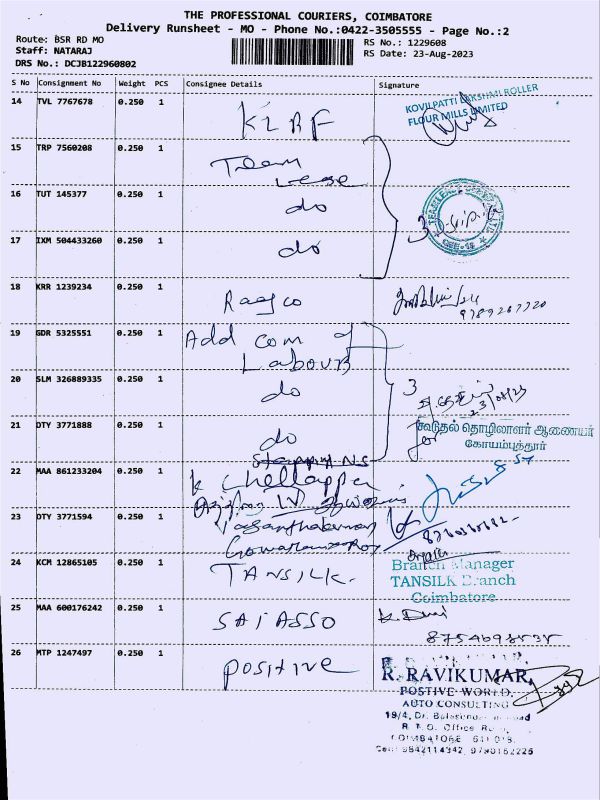 THE PROFESSIONAL COURIERS, COIMBATORE
Delivery Runsheet - MO - Phone No.:0422-3505555 - Page No.:2
Route: BSR RD MO
Staff: NATARAJ
DRS No.: DCJB122960802
RS No.: 1229608
RS Date: 23-Aug-2023
S No Consignment No Weight PCS Consignee Details Signature
14 TVL 7767678 0.250 1 KLRF
KOVILPATTI LAKSHMI ROLLER
FLOUR MILLS LIMITED
15 TRP 7560208 0.250 1 Team
Lease
16 TUT 145377 0.250 1 do
3
17 IXM 504433260 0.250 1 do
18 KRR 1239234 0.250 1
9789267720
19 GDR 5325551 0.250 1 Add com of
Labour
20 SLM 326889335 0.250 1 do
3
23/08/23
21 OTY 3771888 0.250 1 do
கூடுதல் தொழிலாளர் ஆணையர்
கோயம்புத்தூர்
22 MAA 861233204 0.250 1 K Chellappa
23 OTY 3771594 0.250 1
24 KCM 12865105 0.250 1 TANSILK.
Branch Manager
TANSILK Branch
Coimbatore
25 MAA 600176242 0.250 1 SAI ASSO
26 MTP 1247497 0.250 1 positive
R. RAVIKUMAR,
POSTIVE WORLD,
AUTO CONSULTING
19/4, Dr.
R.T.O. Office
COIMBATORE
Cell: 9842114342, 9790152225